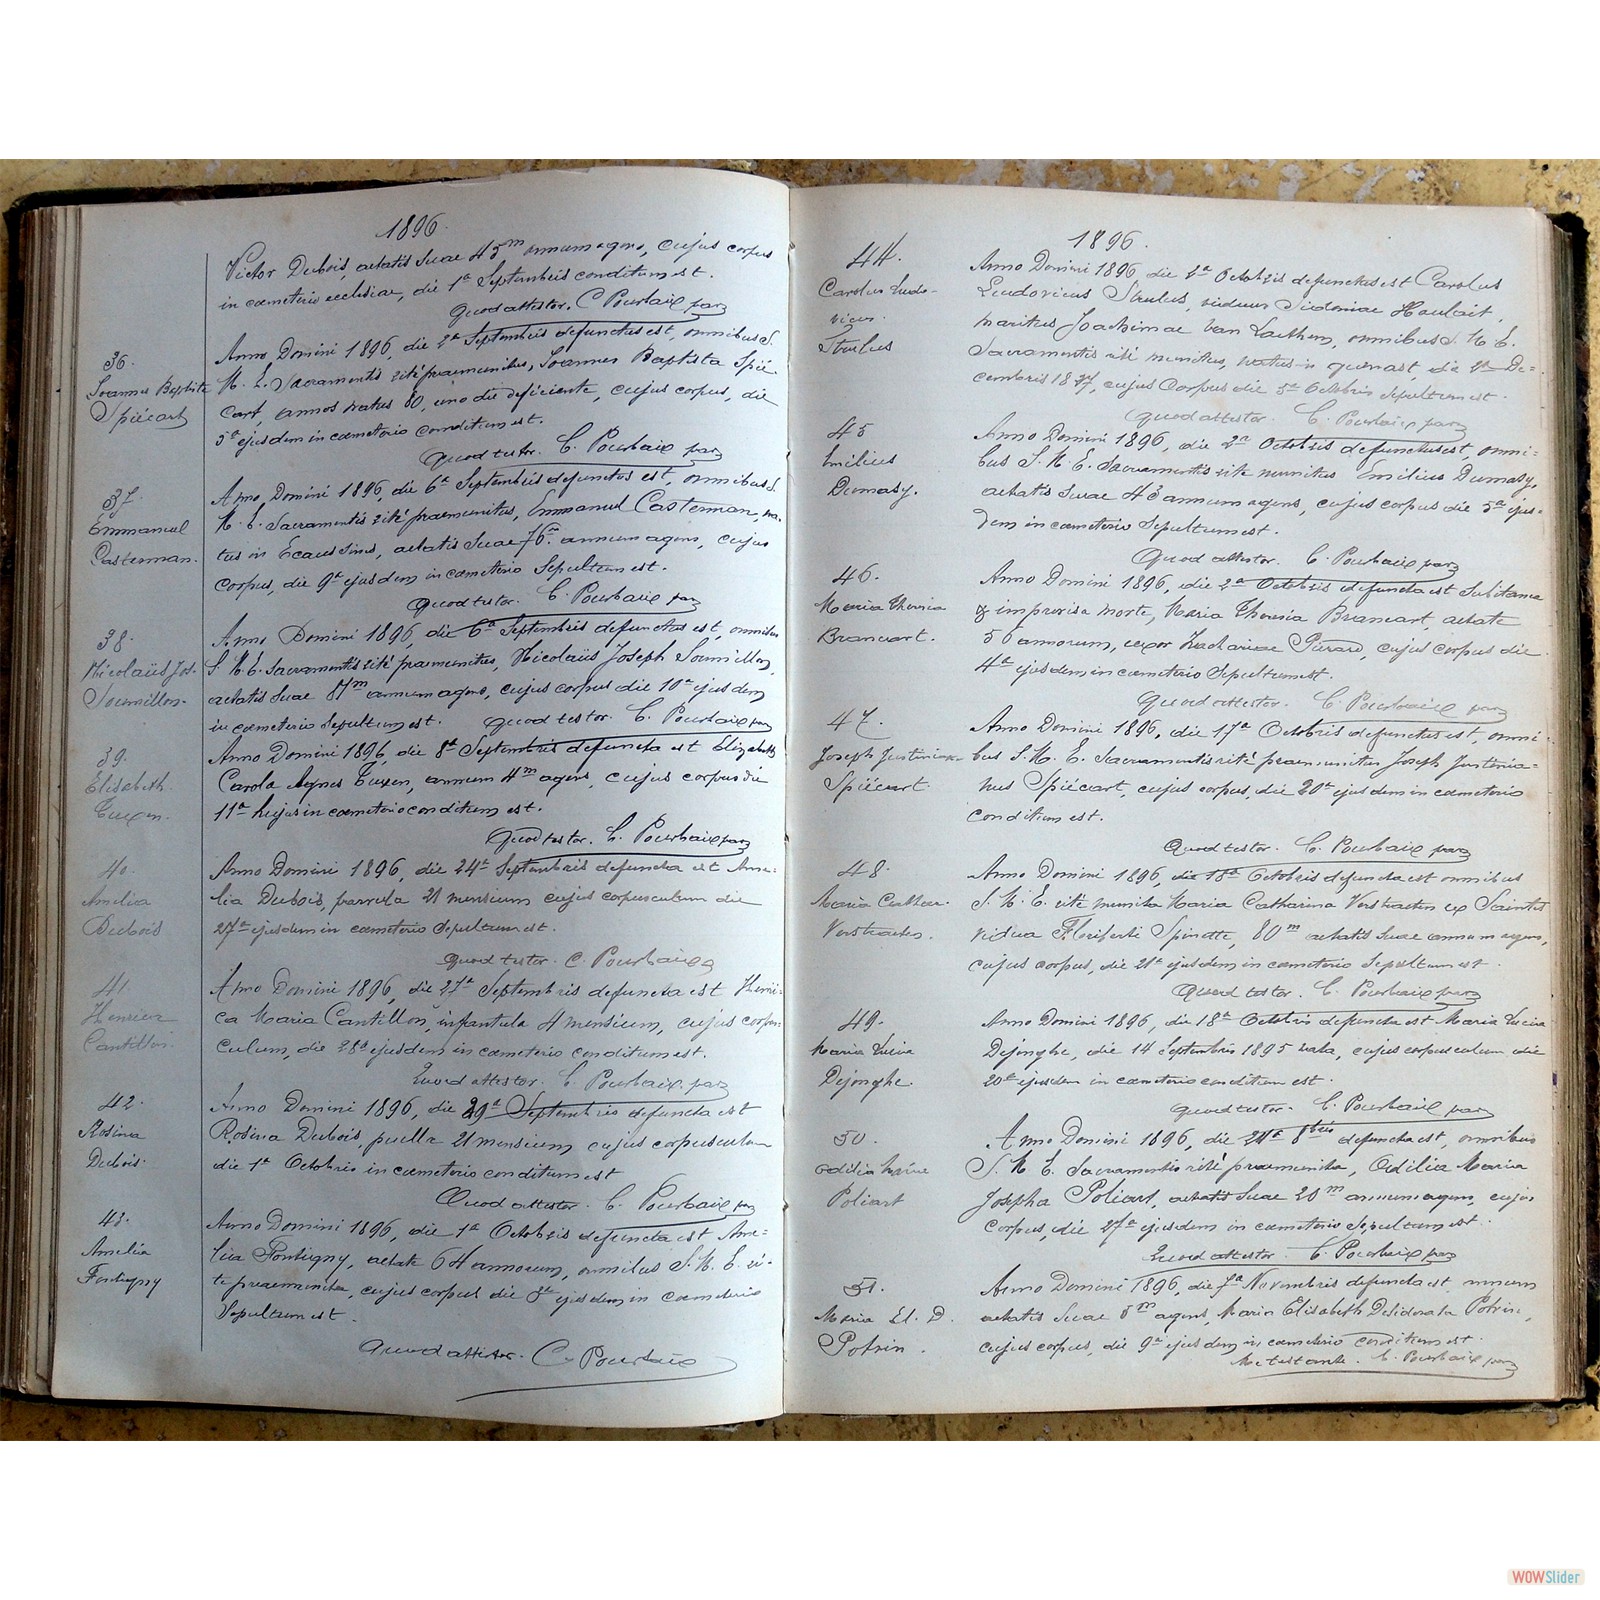 1896.
Victor Dubois, aetatis suae 45m annum agens, cujus corpus
in coemeterio ecclesiae, die 1a Septembris conditum est.
Quod attestor. C. Pourbaix par
36.
Joannes Baptista
Spiécart
Anno Domini 1896, die 2a Septembris defunctus est, omnibus S.
M. E. Sacramentis rité praemunitus, Joannes Baptista Spié-
cart, annos natus 80, uno die deficiente, cujus corpus, die
5a ejusdem in coemeterio conditum est.
Quod testor. C. Pourbaix par
37.
Emmanuel
Casterman.
Anno Domini 1896, die 6a Septembris defunctus est, omnibus S.
M. E. Sacramentis rité praemunitus, Emmanuel Casterman, na-
tus in Ecaussines, aetatis suae 76m annum agens, cujus
corpus, die 9a ejusdem in coemeterio sepultum est.
Quod testor. C. Pourbaix par
38.
Nicolaüs Jos.
Soumillon.
Anno Domini 1896, die 6a Septembris defunctus est, omnibus
S. M. E. Sacramentis rité praemunitus, Nicolaüs Joseph Soumillon,
aetatis suae 87m annum agens, cujus corpus die 10a ejusdem
in coemeterio sepultum est. Quod testor. C. Pourbaix par
39.
Elisabeth
Tuxen.
Anno Domini 1896, die 8a Septembris defuncta est Elizabeth
Carola Agnes Tuxen, annum 4m agens, cujus corpus die
11a hujus in coemeterio conditum est.
Quod testor. C. Pourbaix par
40.
Amelia
Dubois
Anno Domini 1896, die 24a Septembris defuncta est Ame-
lia Dubois, parvula 21 mensium cujus corpusculum die
27a ejusdem in coemeterio sepultum est.
Quod testor. C. Pourbaix
41.
Henrica
Cantillon.
Anno Domini 1896, die 27a Septembris defuncta est Henri-
ca Maria Cantillon, infantula 4 mensium, cujus corpus
culum, die 28a ejusdem in coemeterio conditum est.
Quod attestor. C. Pourbaix par
42.
Rosina
Dubois.
Anno Domini 1896, die 29a Septembris defuncta est
Rosina Dubois, puella 21 mensium cujus corpusculum
die 1a Octobris in coemeterio conditum est
Quod attestor. C. Pourbaix par
43.
Amelia
Fontigny
Anno Domini 1896, die 1a Octobris defuncta est Ame-
lia Fontigny, aetate 64 annorum, omnibus S. M. E. ri-
te praemunita, cujus corpus die 3a ejusdem in coemeterio
sepultum est.
Quod attestor. C. Pourbaix
1896.
44.
Carolus Ludo-
vicus.
Strulus
Anno Domini 1896 die 1a Octobris defunctus est Carolus
Ludovicus Strulus, viduus Sidoniae Houlait,
maritus Joachimae Van Laethem, omnibus S. M. E.
Sacramentis rité munitus, natus in quenast, die De-
cembris 18, cujus corpus die 5a Octobris sepultum est.
Quod attestor. C. Pourbaix par
45
Emilius
Dumasy.
Anno Domini 1896, die 2a Octobris defunctus est, omni-
bus S. M. E. Sacramentis rite munitus Emilius Dumasy,
aetatis suae 43 annum agens, cujus corpus die 5a ejus-
dem in coemeterio sepultum est.
Quod attestor. C. Pourbaix par
46.
Maria Theresia
Brancart.
Anno Domini 1896, die 2a Octobris defuncta est subitanea
& improvisa morte, Maria Theresia Brancart, aetate
56 annorum, uxor Zachariae Pierard, cujus corpus die
4a ejusdem in coemeterio sepultum est.
Quod attestor. C. Pourbaix par
47.
Joseph Justinian
Spiécart.
Anno Domini 1896, die 17a Octobris defunctus est, omni-
bus S. M. E. Sacramentis rité praemunitus Joseph Justinia-
nus Spiécart, cujus corpus, die 20a ejusdem in coemeterio
conditum est.
Quod testor. C. Pourbaix par
48.
Maria Cathar.
Verstraeten.
Anno Domini 1896, die 18a Octobris defuncta est omnibus
S. M. E. rite munita Maria Catharina Verstraeten ex Saintes
vidua Floriferti Spinette, 80m aetatis suae annum agens,
cujus corpus, die 21a ejusdem in coemeterio sepultum est.
Quod testor. C. Pourbaix par
49.
Maria Lucia
Dejonghe.
Anno Domini 1896, die 18a Octobris defuncta est Maria Lucia
Dejonghe, die 14 Septembris 1895 nata, cujus corpusculum die
20a ejusdem in coemeterio conditum est.
Quod testor. C. Pourbaix par
50.
Odilia
Poliart
Anno Domini 1896, die 24a 8bris defuncta est, omnibus
S. M. E. Sacramentis rité praemunita, Odilia Maria
Josepha Poliart, aetatis suae 20m annum agens, cujus
corpus, die 27a ejusdem in coemeterio sepultum est.
Quod attestor. C. Pourbaix par
51.
Maria El. D.
Potvin.
Anno Domini 1896, die 7a Novembris defuncta est, annum
aetatis suae 8m agens, Maria Elisabeth Desiderata Potvin,
cujus corpus, die 9a ejusdem in coemeterio conditum est.
Me testante. C. Pourbaix par
WOWSlider